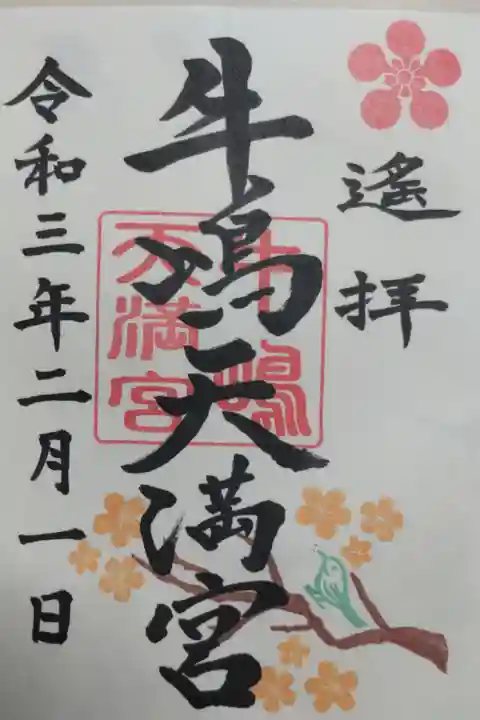 遙拝
牛嶋天満宮
牛嶋
天満宮
令和三年二月一日